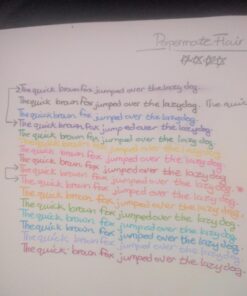 Papermate Flair
The quick brown fox jumped over the lazy dog.
The quick brown fox jumped over the lazy dog. The quick
The quick brown fox jumped over the lazy dog.
The quick brown fox jumped over the lazy dog.
The quick brown fox jumped over the lazy dog.
The quick brown fox jumped over the lazy dog.
The quick brown fox jumped over the lazy dog.
The quick brown fox jumped over the lazy dog.
The quick brown fox jumped over the lazy dog.
The quick brown fox jumped over the lazy dog.
The quick brown fox jumped over the lazy dog.
The quick brown fox jumped over the lazy dog.
The quick brown fox jumped over the lazy dog.
The quick brown fox jumped over the lazy dog
The quick brown fox jumped over the lazy dog.
The quick brown fox jumped over the lazy dog.
The quick brown fox jumped over the lazy dog.